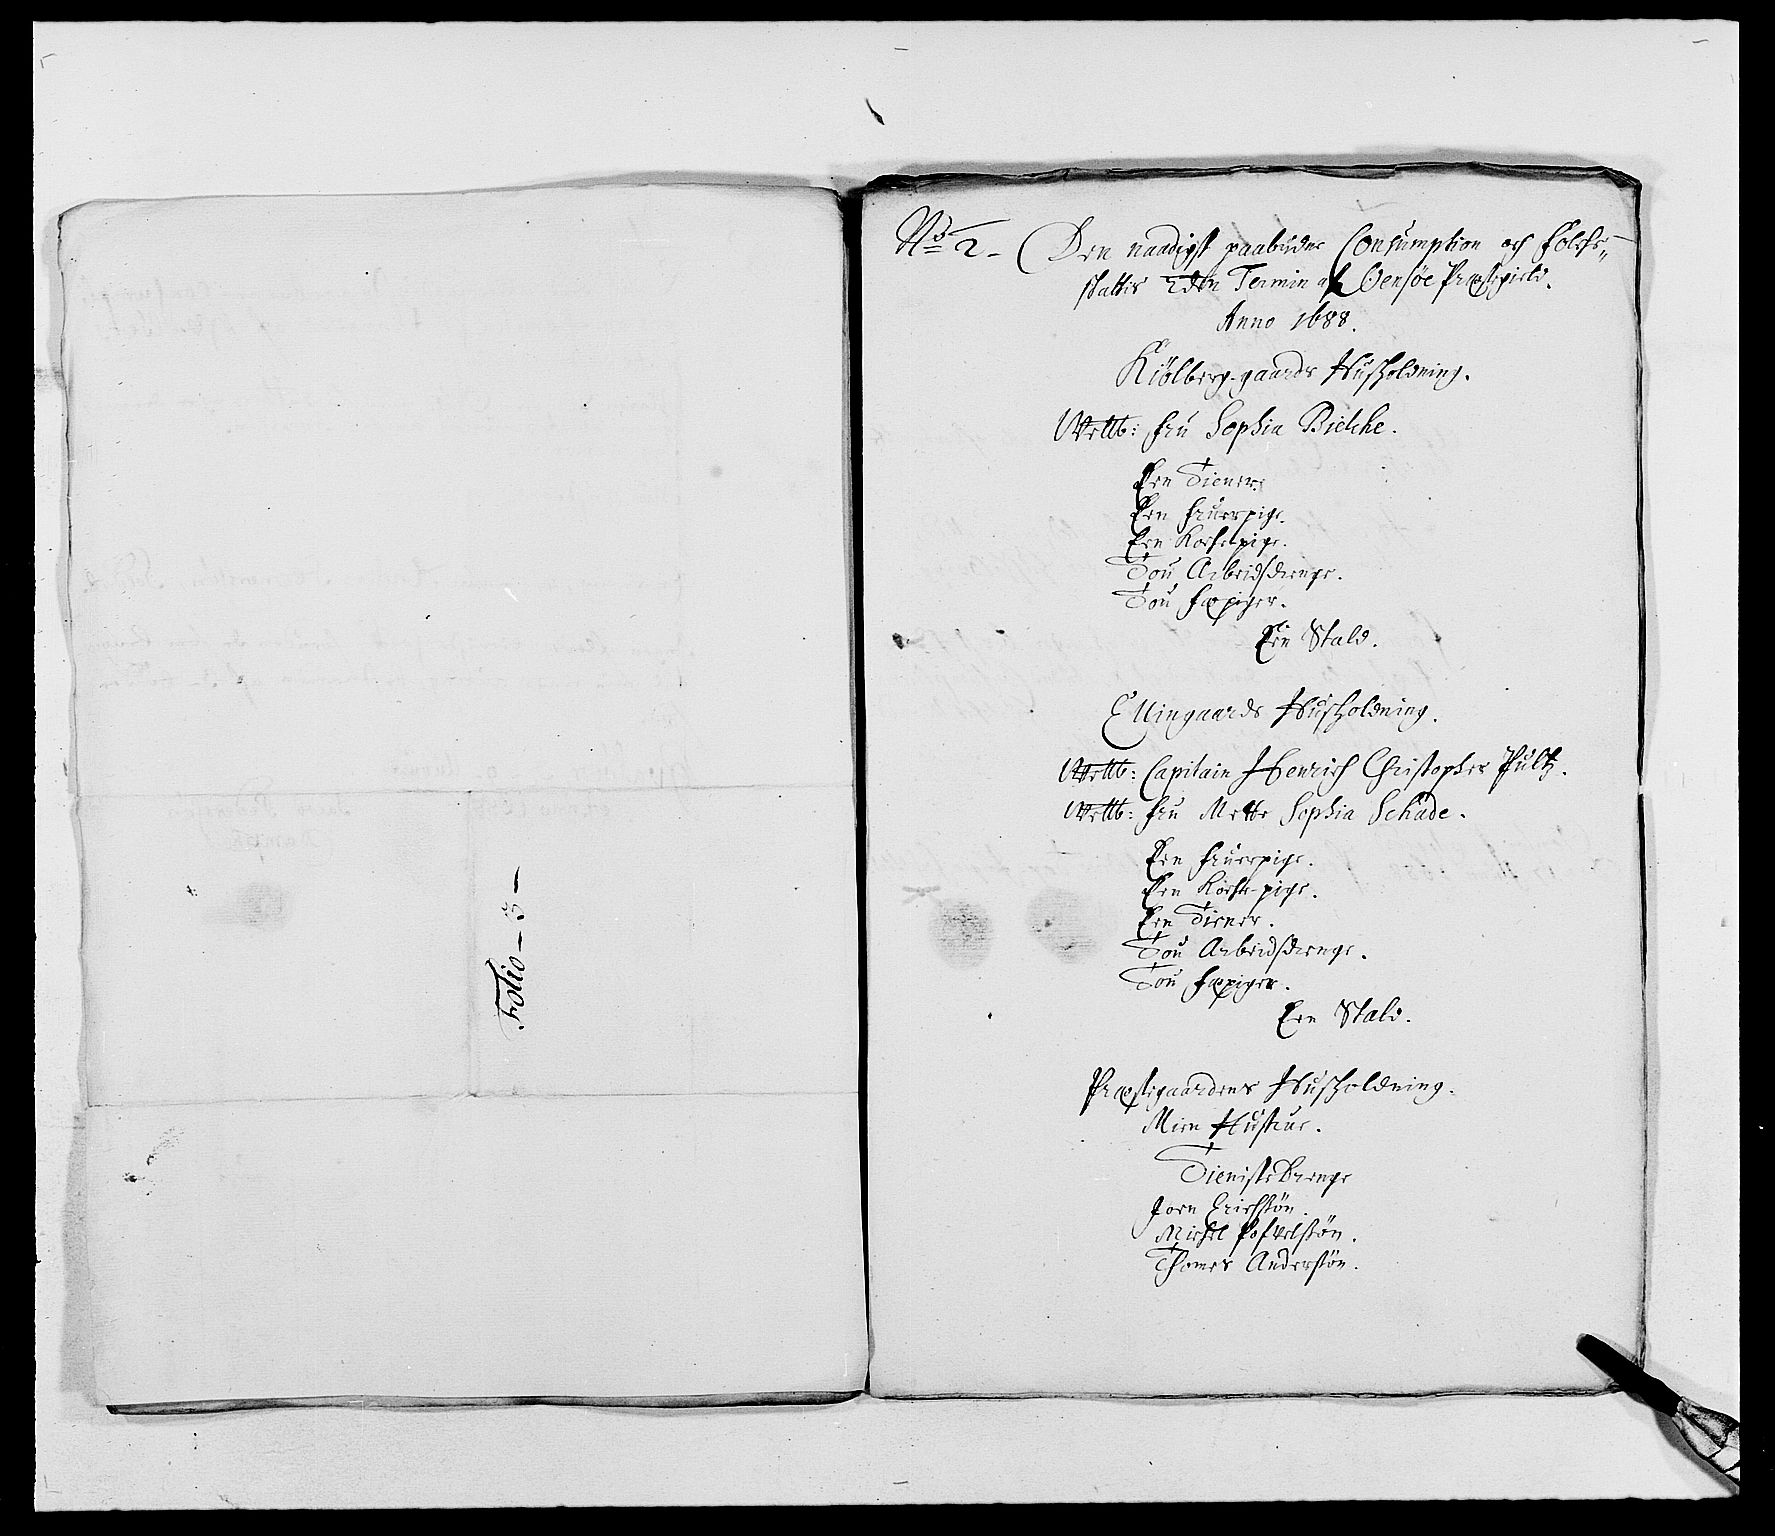 Folio - 3 -
No 2 - Den naadigst paabudne Consumption och folche„
skattis 2den Termin af Oensøe Præstegield.
Anno 1688.
Kiölberg-gaards Husholdning.
Welb: fru Sophia Bielche.
Een Tiener.
Een fruerpige.
Een Kochepige.
Tou Arbeidsdrenge.
Tou fæpiger.
Een Stald.
Ellingaards Husholdning.
Welb: Capitain Henrich Christopher Pultz.
Welb: fru Mette Sophia Schade.
Een fruerpige.
Een Koche-pige.
Een Tiener.
Tou Arbeidsdrenge.
Tou fæpiger.
Een Stald.
Præstegaardens Husholdning.
Mien Hustrue.
Tieniste Drenge
Joen Erichsøn.
Michel Pofvelsøn.
Thomes Andersøn.